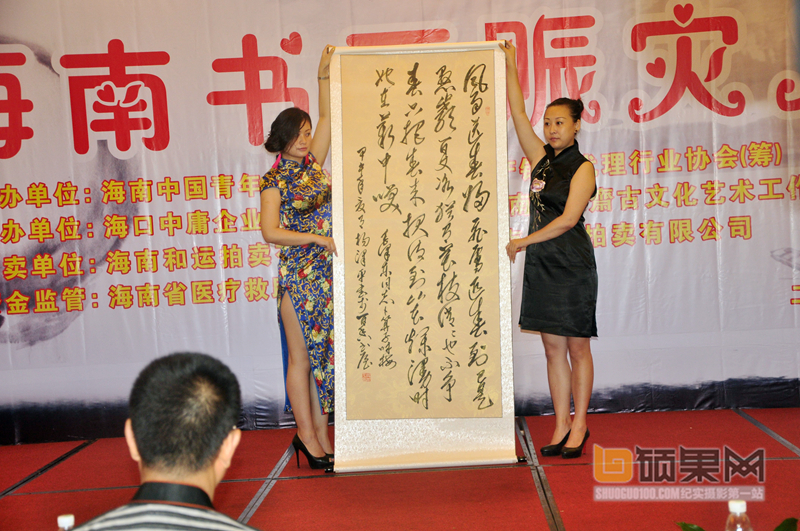 海南书画赈灾
办单位：海南中国青年
办单位：海口中庸企业
卖单位：海南和运拍卖
金监管：海南省医疗救
理行业协会(筹)
斋古文化艺术工作
拍卖有限公司
風雨送春歸飛雪迎春到已是
懸崖百丈冰猶有花枝俏俏也不爭
春只把春來報待到山花爛漫時
她在叢中笑
毛澤東同志卜算子詠梅
硕果网
SHUOGUO100.COM纪实摄影第一站